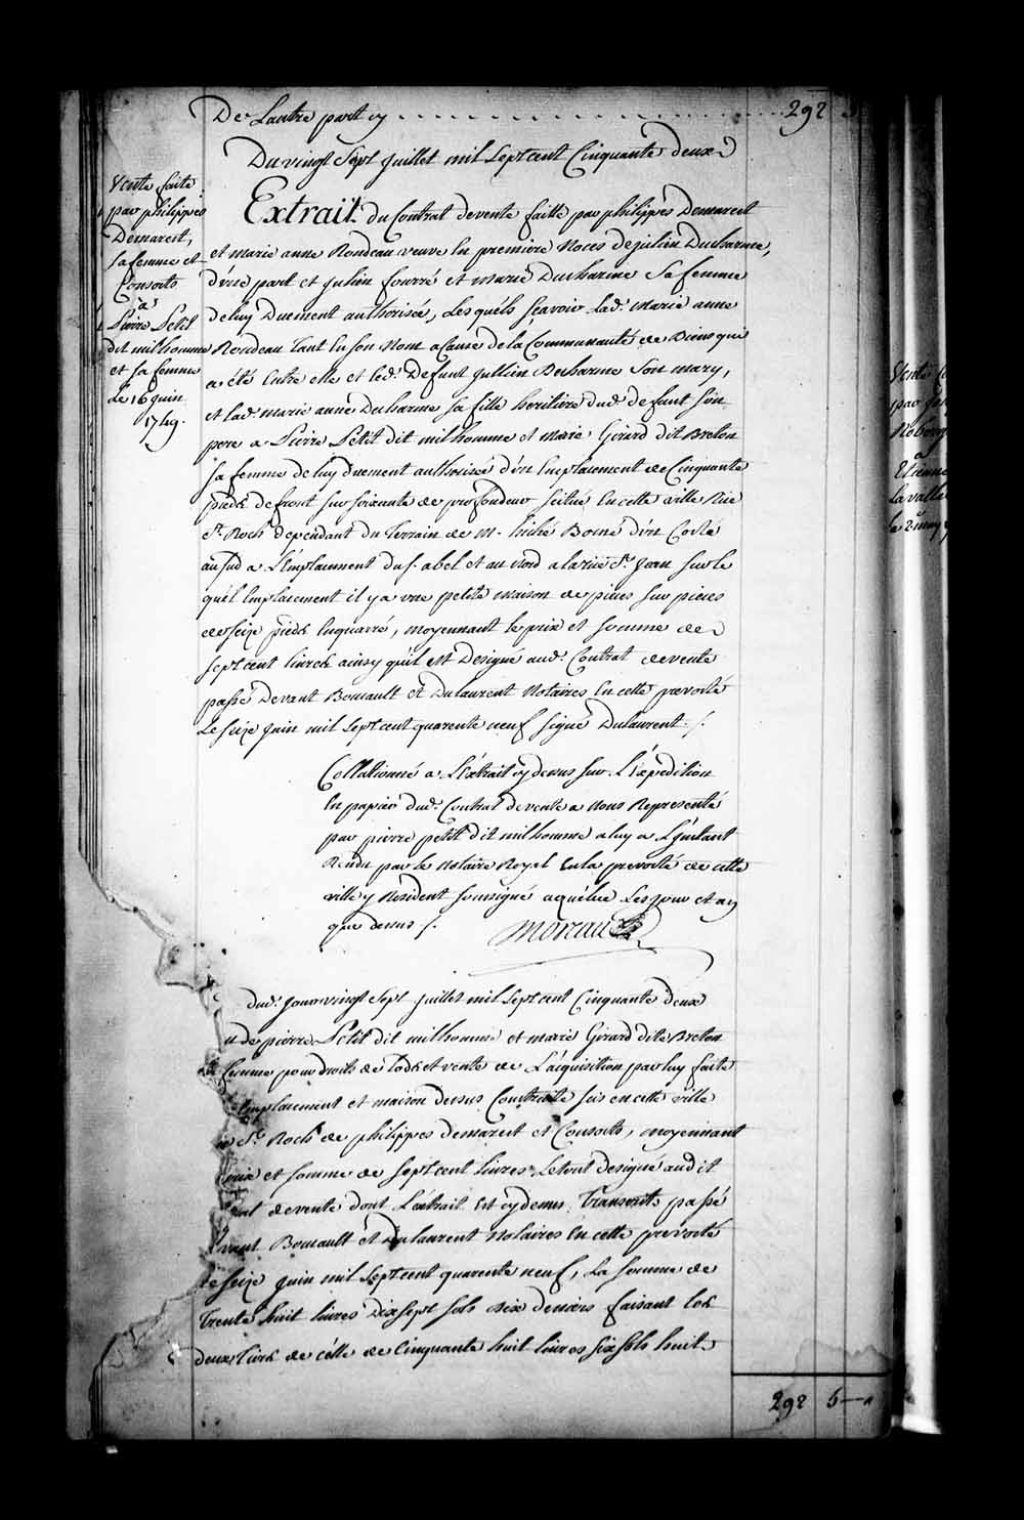 De Lautre part cy . . . . . . . . . . . . . . . . 292 5
Du vingt Sept Juillet mil Sept cent Cinquante deux
Vente faite
par philippes
Demarest,
sa femme et
Consorts
a
Pierre Petit
dit milhomme
et sa femme
Le 16 Juin
1749.
Extrait du Contrat de vente faitte par philippes Demarest
et marie anne Rondeau veuve En premiere Noces de julien Ducharme,
d'une part et Julien fourré et marie Ducharme Sa femme
de luy Duement authorisée, Lesquéls sçavoir Lad. marie anne
Rondeau tant En son Nom a Cause de la Communauté de Biens qui
a été Entre elle et led. Defunt Jullien Ducharme Son mary,
et Lad. marie anne Ducharme sa fille heritiere dud. defunt Son
pere a Pierre Petit dit milhomme et marie Girard dit Breton
sa femme de luy duement authorisée d'un Emplacement de Cinquante
pieds de front sur soixante de profondeur scitué En cette ville Rue
St. Roch dependant du Terrain de M. hiché Borné d'un Costé
au sud a L'Emplacement du s. abel et au Nord a la rue St. Jean sur le
quél Emplacement il y a une petite maison de pieces sur pieces
de seize pieds En quarré, moyennant le prix et somme de
sept cent livres ainsy qu'il est Designé aud. Contrat de vente
passé Devant Boucault et Dulaurent Notaires En cette prevosté
Le seize Juin mil sept cent quarente neuf signé Dulaurent ./.
Collationné a L'Extrait cy dessus sur L'Expedition
En papier dud. Contrat de vente a Nous Representé
par pierre petit dit milhomme a luy a L'instant
Rendu par le Notaire Royal En la prevosté de cette
ville y Resident soussigné a québec Les jour et an
que dessus /. Moreau
Dud. Jour vingt Sept Juillet mil Sept cent Cinquante deux
u de pierre Petit dit milhomme et marie Girard dite Breton
sa femme pour droits de Lods et vente de L'acquisition par luy faite
Emplacement et maison dessus Construite sis en cette ville
St. Roch de philippes demarest et Consorts, moyennant
prix et somme de Sept cent livres Le tout designé audit
de vente dont L'extrait Est cy dessus Transcrit passé
vant Boucault et Dulaurent Notaires En cette prevosté
le seize Juin mil Sept cent quarente neuf, La somme de
Trente huit livres Dix sept sols Six deniers faisant les
deux tiers de célle de Cinquante huit livres six sols huit
292 5
Vente
par
a
Etienne
la vallé
le 2 may